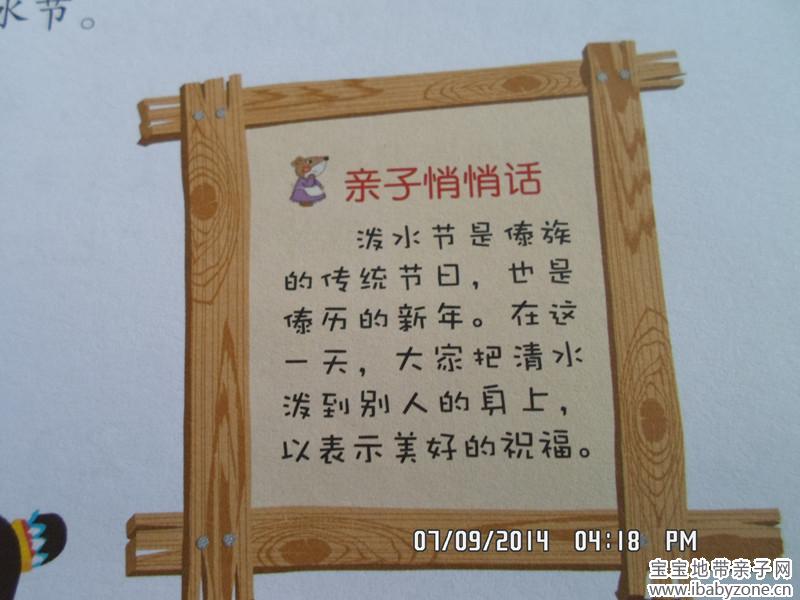 水节。
亲子悄悄话
泼水节是傣族
的传统节日，也是
傣历的新年。在这
一天，大家把清水
泼到别人的身上，
以表示美好的祝福。
07/09/2014 04:18 PM
宝宝地带亲子网
www.ibabyzone.cn